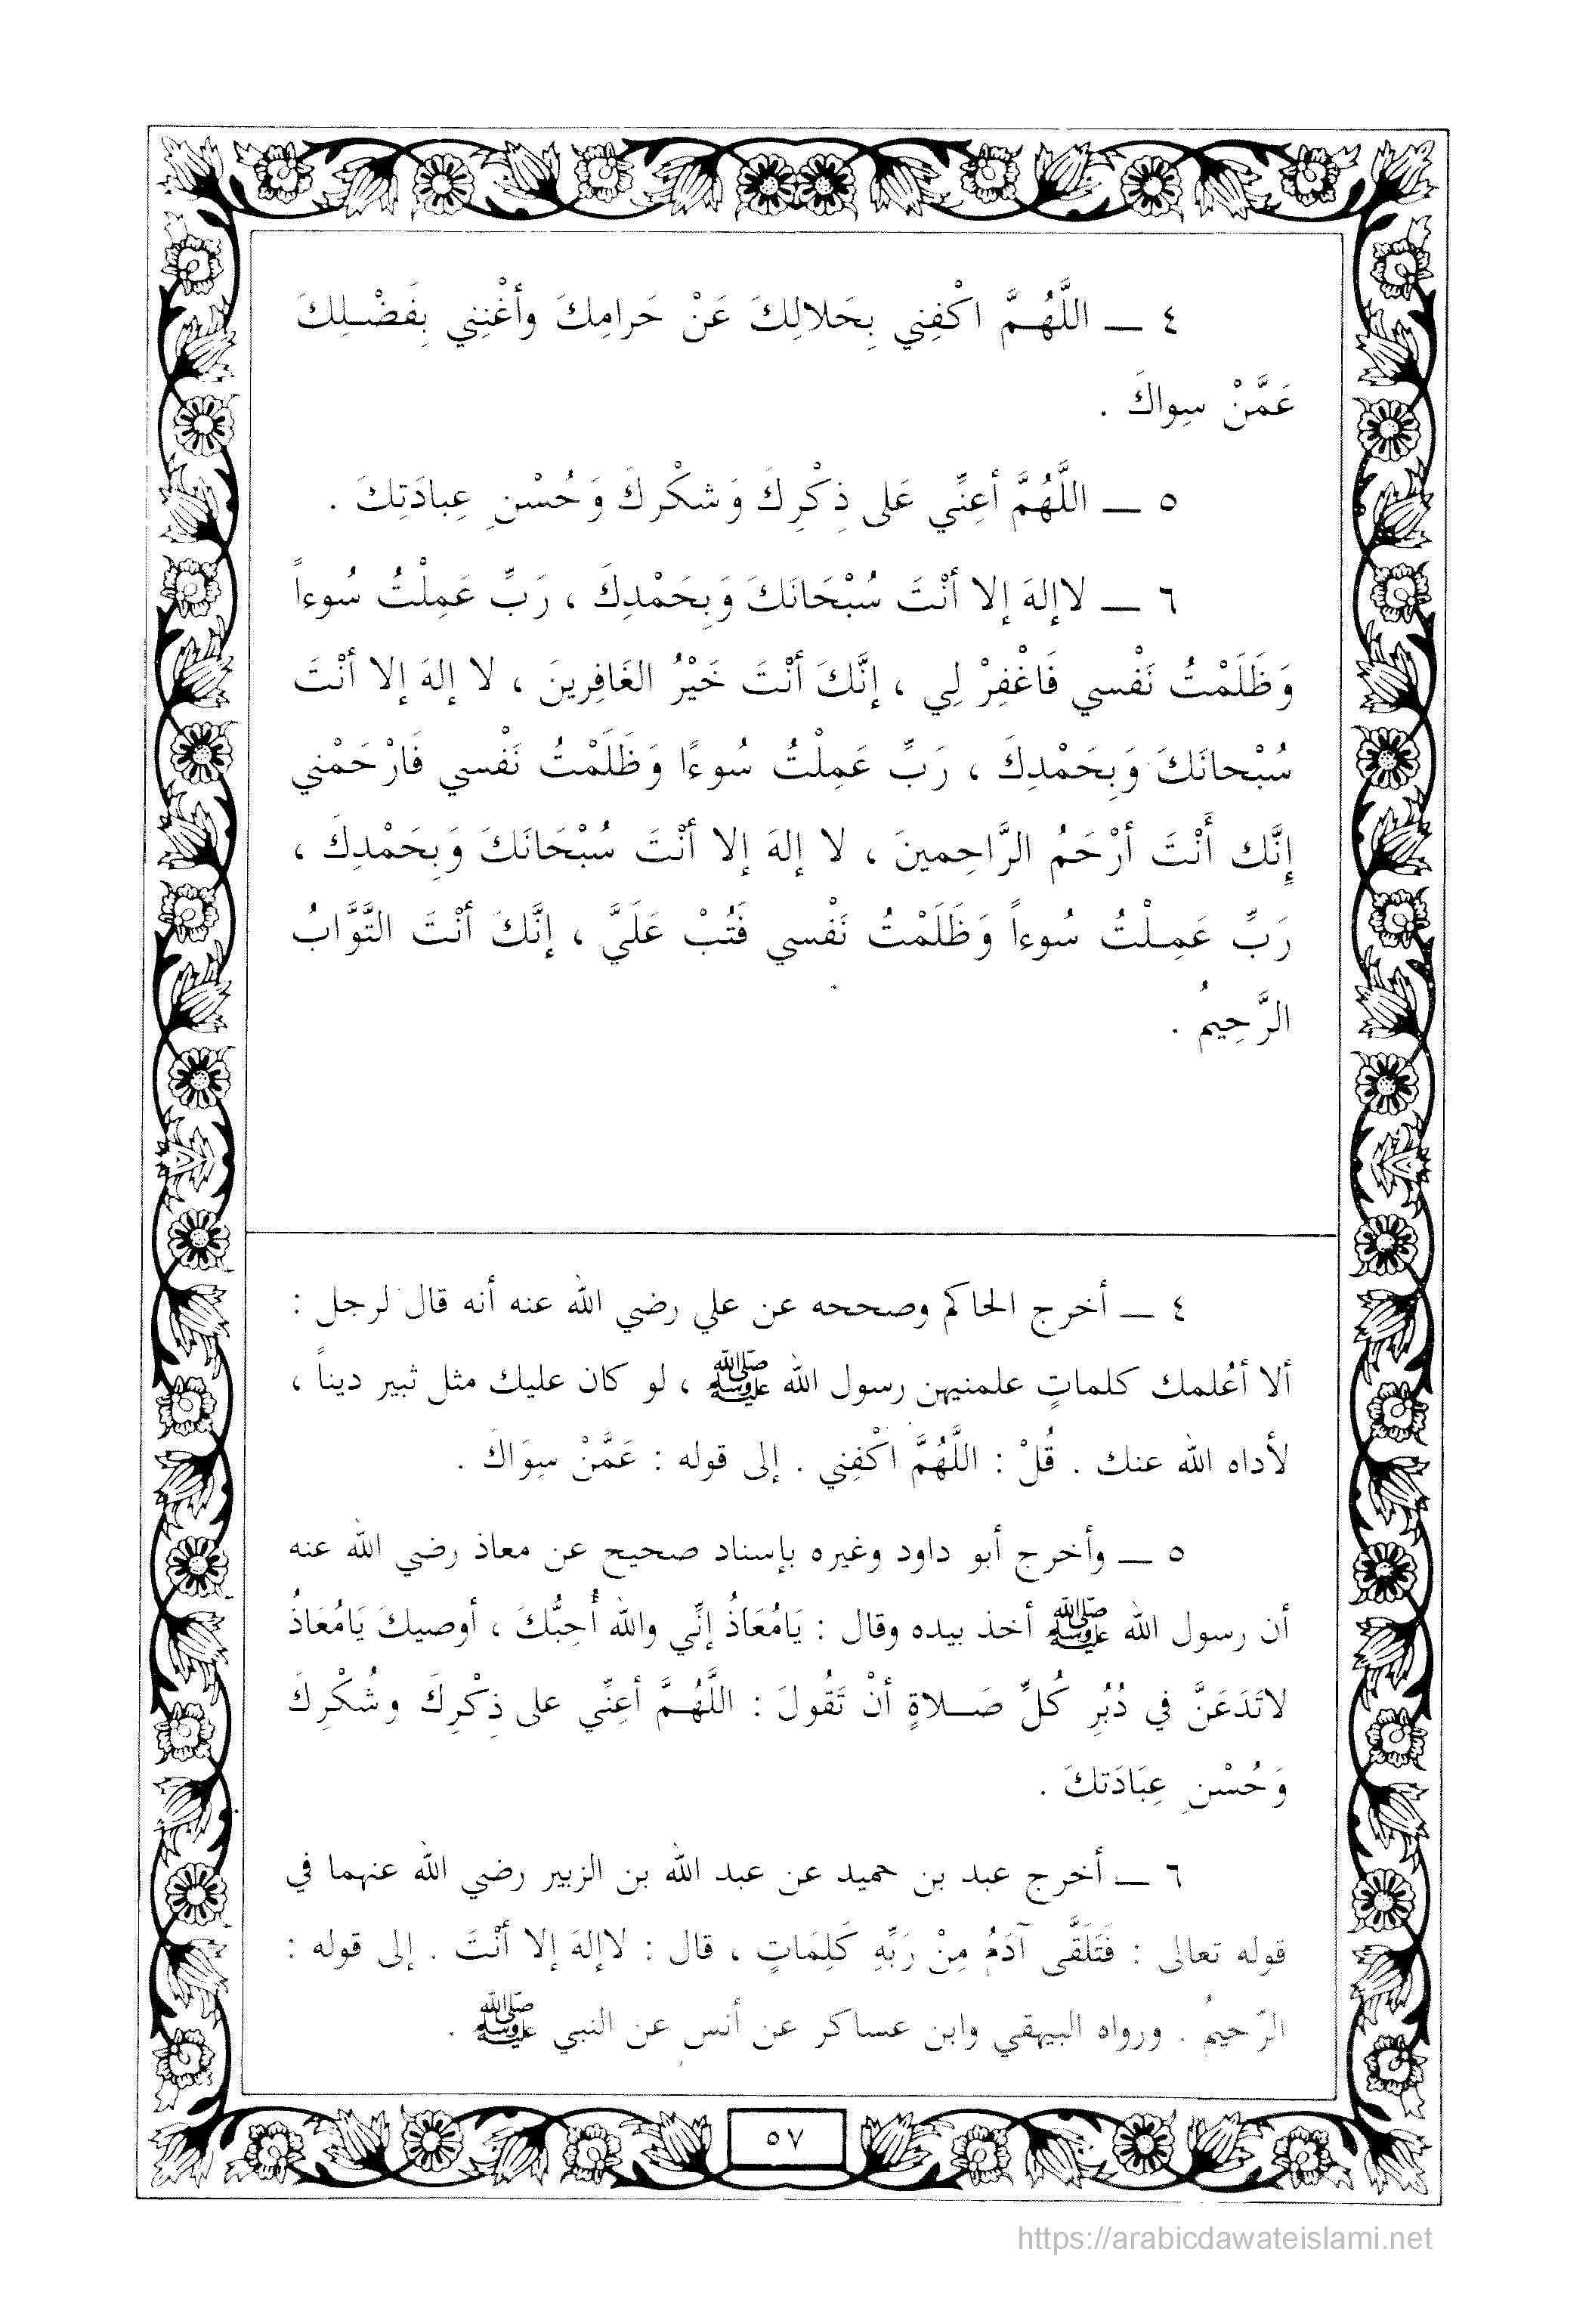 ٤ ـ اللَّهُمَّ اكْفِنِي بِحَلالِكَ عَنْ حَرامِكَ وأغْنِنِي بِفَضْلِكَ
عَمَّنْ سِواكَ .
٥ ـ اللَّهُمَّ أعِنِّي عَلى ذِكْرِكَ وَشكْرِكَ وَحُسْنِ عِبادَتِكَ .
٦ ـ لاإلهَ إلا أنْتَ سُبْحَانَكَ وَبِحَمْدِكَ ، رَبِّ عَمِلْتُ سُوءاً
وَظَلَمْتُ نَفْسي فَاغْفِرْ لِي ، إنَّكَ أنْتَ خَيْرُ الغَافِرِينَ ، لا إلهَ إلا أنْتَ
سُبْحانَكَ وَبِحَمْدِكَ ، رَبِّ عَمِلْتُ سُوءًا وَظَلَمْتُ نَفْسي فَارْحَمْني
إِنَّك أَنْتَ أرْحَمُ الرَّاحِمينَ ، لا إلهَ إلا أنْتَ سُبْحَانَكَ وَبِحَمْدِكَ ،
رَبِّ عَمِلْتُ سُوءاً وَظَلَمْتُ نَفْسي فَتُبْ عَلَيَّ ، إنَّكَ أنْتَ التَّوَّابُ
الرَّحِيمُ .
٤ ـ أخرج الحاكم وصححه عن علي رضي الله عنه أنه قال لرجل :
ألا أعُلمك كلماتٍ علمنيهن رسول الله ﷺ ، لو كان عليك مثل ثبير ديناً ،
لأداه الله عنك . قُلْ : اللَّهُمَّ اكْفِنِي . إلى قوله : عَمَّنْ سِوَاكَ .
٥ ـ وأخرج أبو داود وغيره بإسناد صحيح عن معاذ رضي الله عنه
أن رسول الله ﷺ أخذ بيده وقال : يَامُعَاذُ إنِّي والله أُحِبُّكَ ، أوصيكَ يَامُعَاذُ
لاتَدَعَنَّ في دُبُرِ كُلِّ صَلاةٍ أنْ تَقُولَ : اللَّهُمَّ أعِنِّي على ذِكْرِكَ وشُكْرِكَ
وَحُسْنِ عِبَادَتكَ .
٦ ـ أخرج عبد بن حميد عن عبد الله بن الزبير رضي الله عنهما في
قوله تعالى : فَتَلَقَّى آدَمُ مِنْ رَبِّهِ كَلِمَاتٍ ، قال : لاإلهَ إلا أنْتَ . إلى قوله :
الرّحيمُ . ورواه البيهقي وابن عساكر عن أنس عن النبي ﷺ .
٥٧
https://arabicdawateislami.net